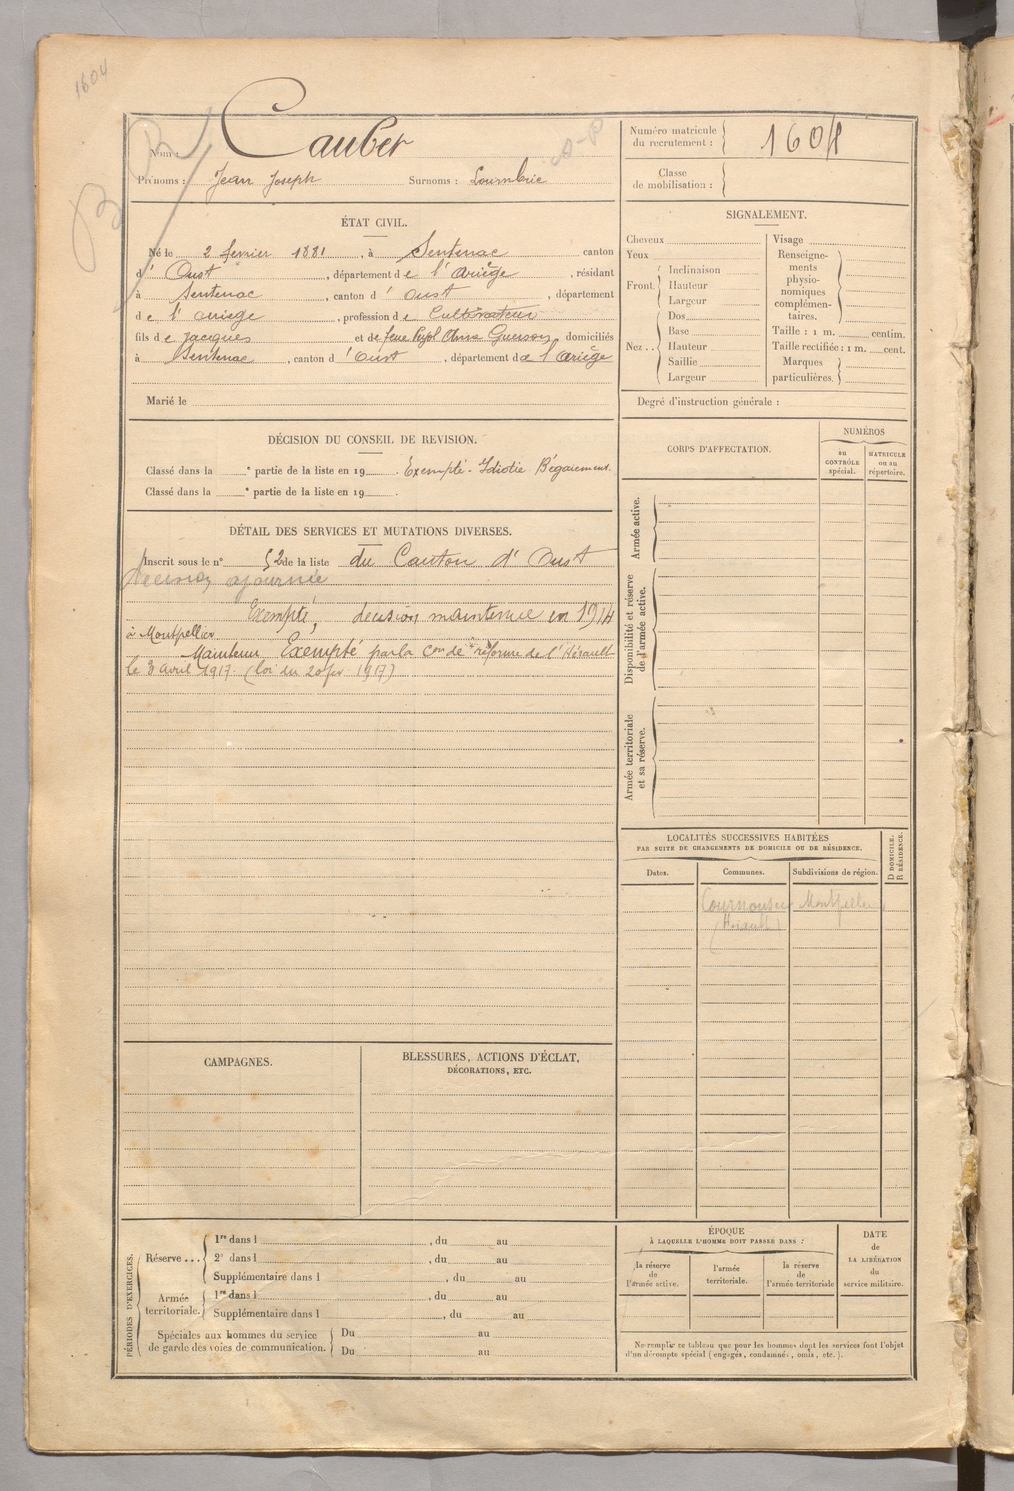 1604
Nom : Caubet
Prénoms : Jean Joseph Surnoms : Loumbrie
Numéro matricule du recrutement : 1604
Classe de mobilisation :
ÉTAT CIVIL.
Né le 2 février 1881, à Sentenac canton
d' Oust, département de l'Ariège, résidant
à Sentenac, canton d' Oust, département
de l'Ariège, profession de Cultivateur
fils de Jacques et de feue Pujol Anne domiciliés
à Sentenac, canton d' Oust, département de l'Ariège
Marié le
SIGNALEMENT.
Cheveux
Yeux
Front. Inclinaison
Hauteur
Largeur
Nez.. Dos
Base
Hauteur
Saillie
Largeur
Visage
Renseigne-
ments
physio-
nomiques
complémen-
taires.
Taille : 1 m. centim.
Taille rectifiée : 1 m. cent.
Marques
particulières.
Degré d'instruction générale :
DÉCISION DU CONSEIL DE REVISION.
Classé dans la e partie de la liste en 19 . Exempté - Idiotie Bégaiement.
Classé dans la e partie de la liste en 19 .
DÉTAIL DES SERVICES ET MUTATIONS DIVERSES.
Inscrit sous le n° 52 de la liste du Canton d' Oust
Décision ajournée
Exempté, décision maintenue en 1914
à Montpellier
Maintenu Exempté par la Con de réforme de l'Hérault
le 3 Avril 1917. (loi du 20 fév 1917)
CORPS D'AFFECTATION.
NUMÉROS
au
CONTRÔLE
spécial.
MATRICULE
ou au
répertoire.
Armée active.
Disponibilité et réserve
de l'armée active.
Armée territoriale
et sa réserve.
LOCALITÉS SUCCESSIVES HABITÉES
PAR SUITE DE CHANGEMENTS DE DOMICILE OU DE RÉSIDENCE.
Dates. Communes. Subdivisions de région.
D DOMICILE.
R RÉSIDENCE.
Cournonsec Montpellier
(Hérault)
CAMPAGNES.
BLESSURES, ACTIONS D'ÉCLAT,
DÉCORATIONS, ETC.
PÉRIODES D'EXERCICES.
Réserve... 1re dans l , du au
2e dans l , du au
Supplémentaire dans l , du au
Armée territoriale. 1re dans l , du au
Supplémentaire dans l , du au
Spéciales aux hommes du service
de garde des voies de communication. Du au
Du au
ÉPOQUE
À LAQUELLE L'HOMME DOIT PASSER DANS :
la réserve
de
l'armée active.
l'armée
territoriale.
la réserve
de
l'armée territoriale
DATE
de
LA LIBÉRATION
du
service militaire.
Ne remplir ce tableau que pour les hommes dont les services font l'objet
d'un décompte spécial (engagés, condamnés, omis, etc.).